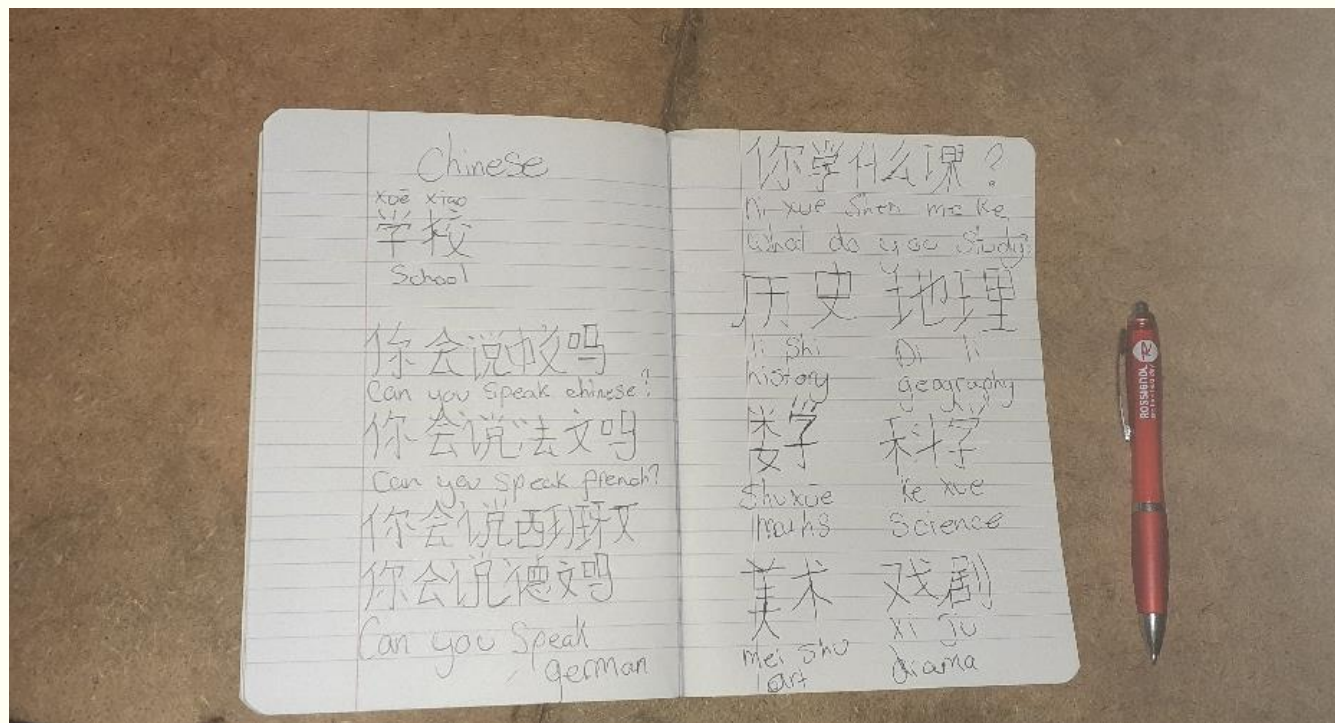 Chinese
xuē xiao
学校
School
你会说中文吗
Can you speak chinese?
你会说法文吗
Can you speak french?
你会说西班牙文
你会说德文吗
Can you Speak
german
你学什么课?
ni xue Shen me ke
what do you study?
历史 地理
li Shi Di li
history geography
数学 科学
Shuxue ke xue
maths Science
美术 戏剧
mei shu xi Ju
art drama
ROSSIGNOL